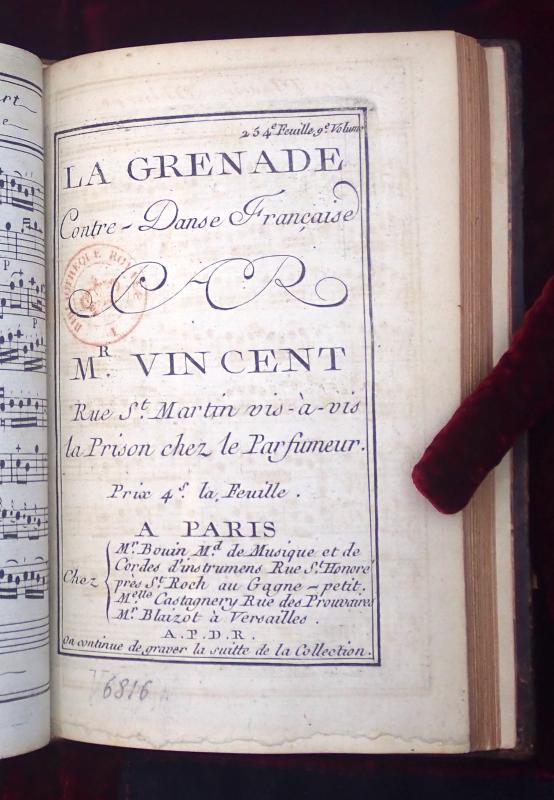 234e Feuille, 9e Volume
LA GRENADE
Contre-Danse Française
PAR
MR. VINCENT
Rue St. Martin vis-à-vis
la Prison chez le Parfumeur.
Prix 4s. la Feuille.
A PARIS
Chez
Mr. Bouin Md. de Musique et de
Cordes d'instrumens Rue St. Honoré
près St. Roch au Gagne-petit.
Melle Castagnery Rue des Prouvaires
Mr. Blaizot à Versailles.
A.P.D.R.
On continue de graver la suitte de la Collection.
6816